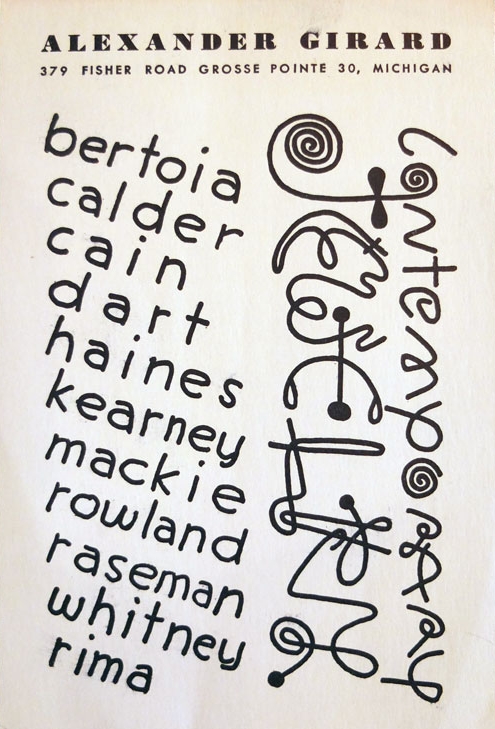 ALEXANDER GIRARD
379 FISHER ROAD GROSSE POINTE 30, MICHIGAN
bertoia
calder
cain
dart
haines
kearney
mackie
rowland
raseman
whitney
rima
contemporary
jewelry